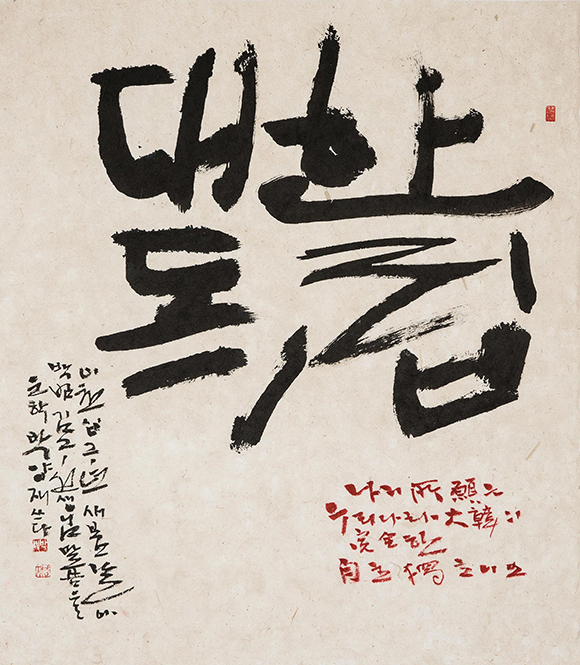 대한
독립
나의 所願은
우리나라 大韓의
完全한
自主獨立이오
이천십구년 새봄날에
백범 김구 선생님 말씀을
운학 박양재 쓰다